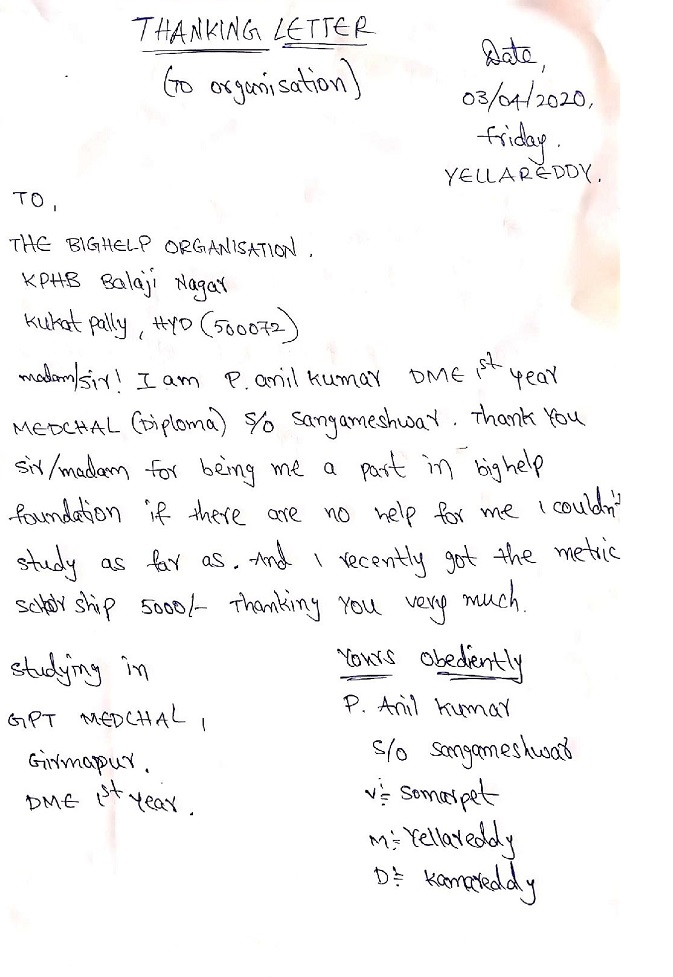 THANKING LETTER
(TO organisation)
Date,
03/04/2020,
friday.
YELLAREDDY.
TO,
THE BIGHELP ORGANISATION.
KPHB Balaji Nagar
Kukat pally, HYD (500072)
madam/sir! I am P. anil kumar DME 1st year
MEDCHAL (Diploma) S/o Sangameshwar. Thank You
sir/madam for being me a part in bighelp
foundation if there are no help for me i couldn't
study as far as. And i recently got the metric
ship 5000/- Thanking You very much.
studying in
GPT MEDCHAL,
Girmapur.
DME 1st Year.
Yours Obediently
P. Anil kumar
S/o Sangameshwar
V:- Somarpet
M:- Yellareddy
D:- Kamareddy